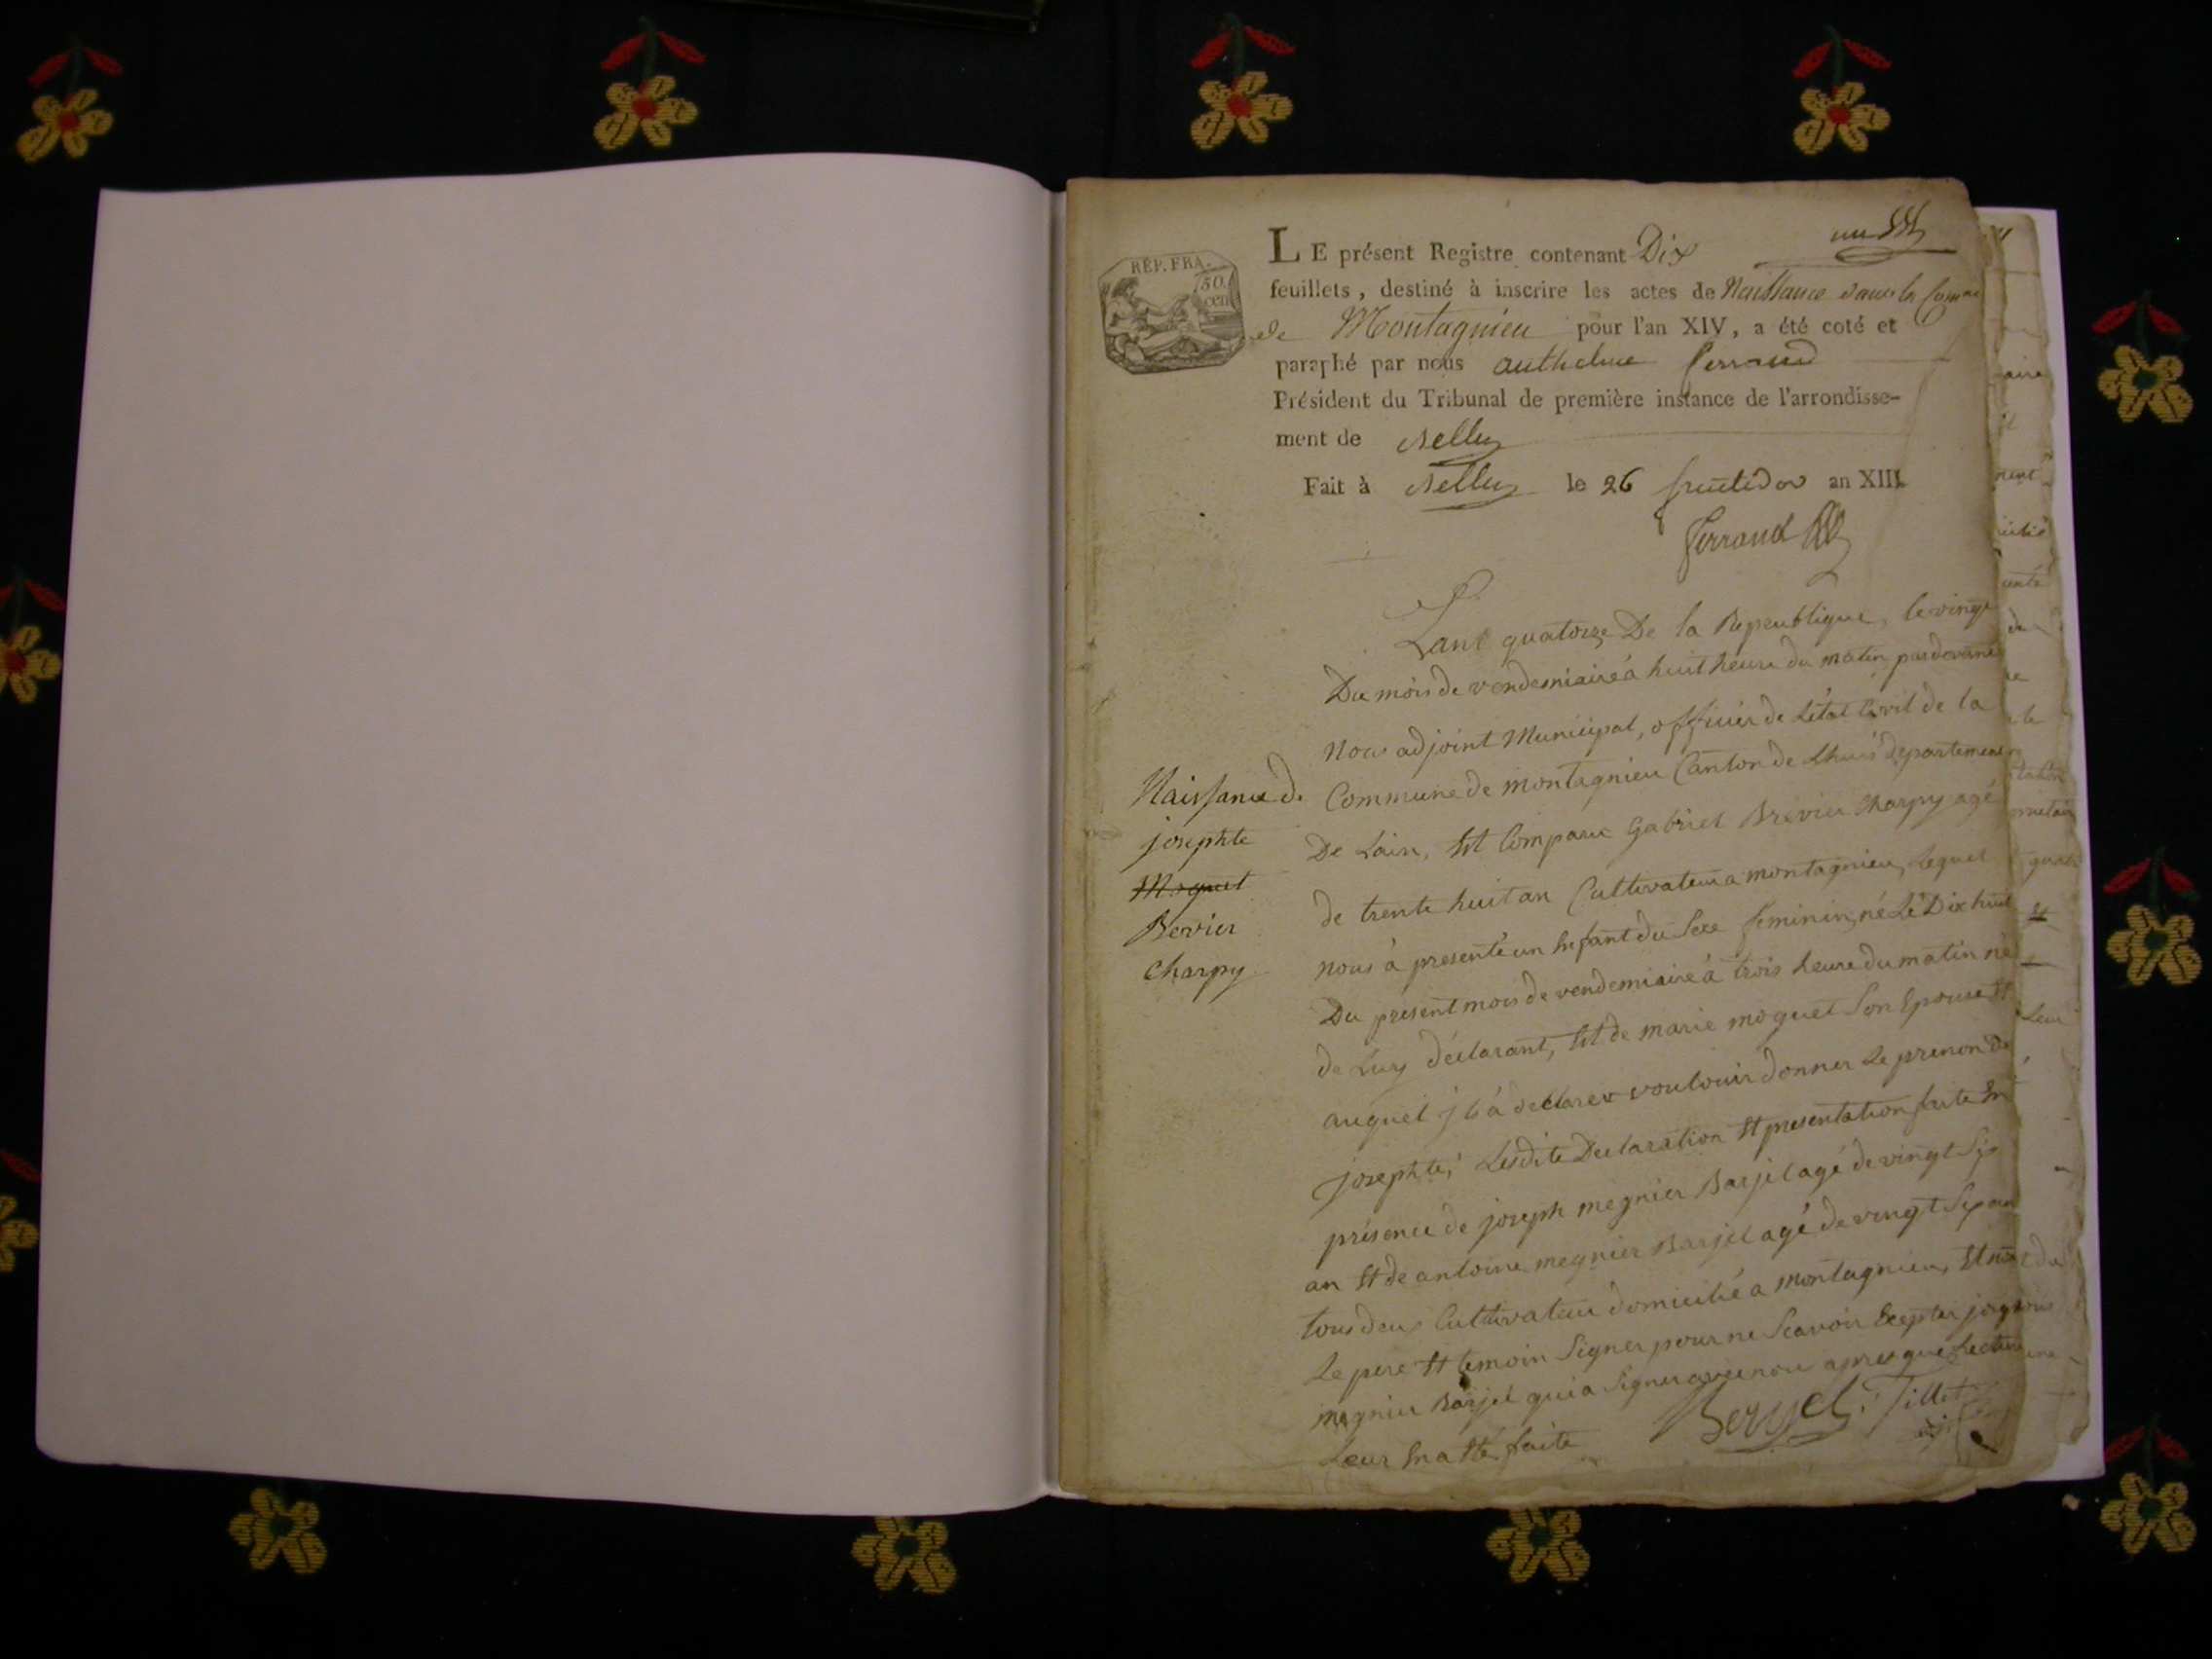 RÉP. FRA.
50.
cen
un
LE présent Registre contenant Dix
feuillets, destiné à inscrire les actes de Naissance dans la Comne
de Montagnieu pour l'an XIV, a été coté et
paraphé par nous anthelme ferrand
Président du Tribunal de première instance de l'arrondisse-
ment de Belley
Fait à Belley le 26 fructidor an XIII
ferrand
Lant quatorze De la Repeublique, le vingt
Du mois de vendemiaire à huit heure du matin pardevant
Nous adjoint Municipal, officier de Létat Civil de la
Commune de montagnieu Canton de Lhuis departement
De Lain, Et Comparu Gabriel Brevier Charpy agé
de trente huit an Cultivateur a montagnieu, Lequel
nous à presenté un Enfant du Sexe feminin, né Le Dix huit
Du present mois de vendemiaire à trois heure du matin né
de Luy déclarant, Et de marie moquet Son Epouse Et
auquel jl à declarer voulouir donner Le prenon De
josephte, Lesdite Declaration Et presentation faite En
présence de joseph megnier Barjel agé de vingt Sis
an Et de antoine megnier Barjel agé de vingt Sep an
tous deux Cultivateur domicilié a montagnieu, Et non
Le pere Et temoin Signer pour ne Scavoir Excepter joseph
megnier Barjel qui a Signer avec nou apres que Lecture
Leur En a Eté faite
Berjel Tillet
adj
Naissance de
josephte
Moquet
Bevier
Charpy